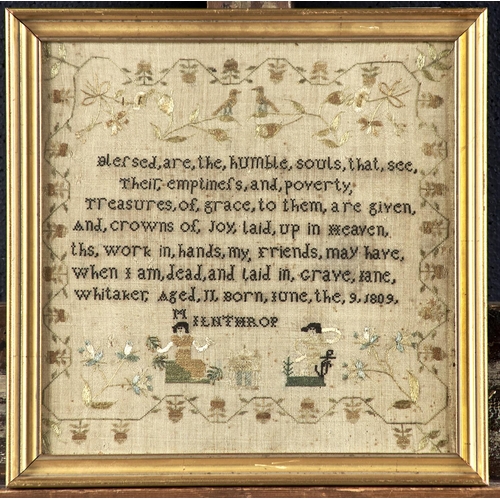 Blessed, are, the, humble, souls, that, see,
Their, emptiness, and, poverty,
Treasures, of, grace, to them, are given,
And, crowns of, Joy, laid, up in Heaven,
ths, work in, hands, my, friends, may have,
when I am, dead, and laid in, Grave, Jane,
Whitaker, Aged, 11 Born, June, the, 9, 1809,
MILNTHROP